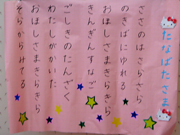 たなばたさま
ささのはさらさら
のきばにゆれる
おほしさまきらきら
きんぎんすなご
ごしきのたんざく
わたしがかいた
おほしさまきらきら
そらからみてる